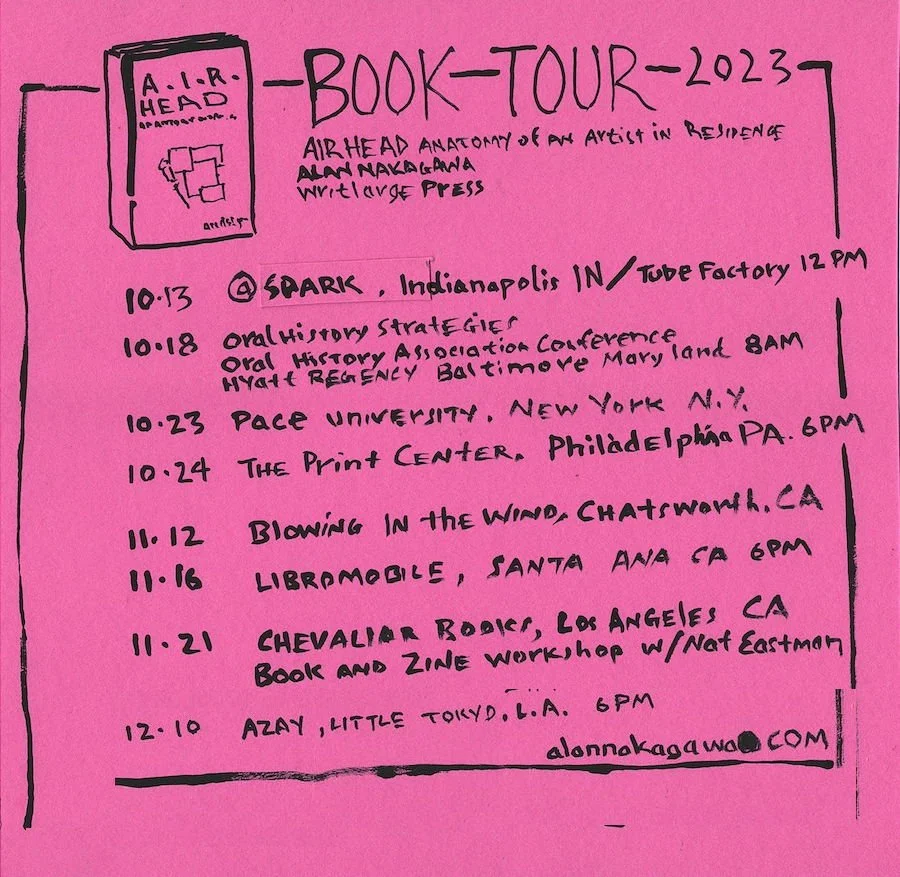 A.I.R.
HEAD
BOOK TOUR 2023
AIRHEAD ANATOMY of AN Artist in RESIDENCE
ALAN NAKAGAWA
writlarge Press
10.13 @ SPARK, Indianapolis IN/Tube Factory 12 PM
10.18 oral History StrateGiES
Oral History Association Conference
HYatt REGENCY Baltimore Maryland 8AM
10.23 Pace UNIVERSITY, NEW YORK N.Y.
10.24 THE Print CENTER, Philadelphia PA. 6PM
11.12 BlowiNG IN the WIND, CHAtsworth, CA
11.16 LIBROMOBILE, SANTA ANA CA 6PM
11.21 CHEVALIAR BOOKS, Los ANGELES CA
BOOK AND ZINE WORKSHOP w/Nat Eastman
12.10 AZAY, LITTLE TOKYO, L.A. 6PM
alannakagawa.COM